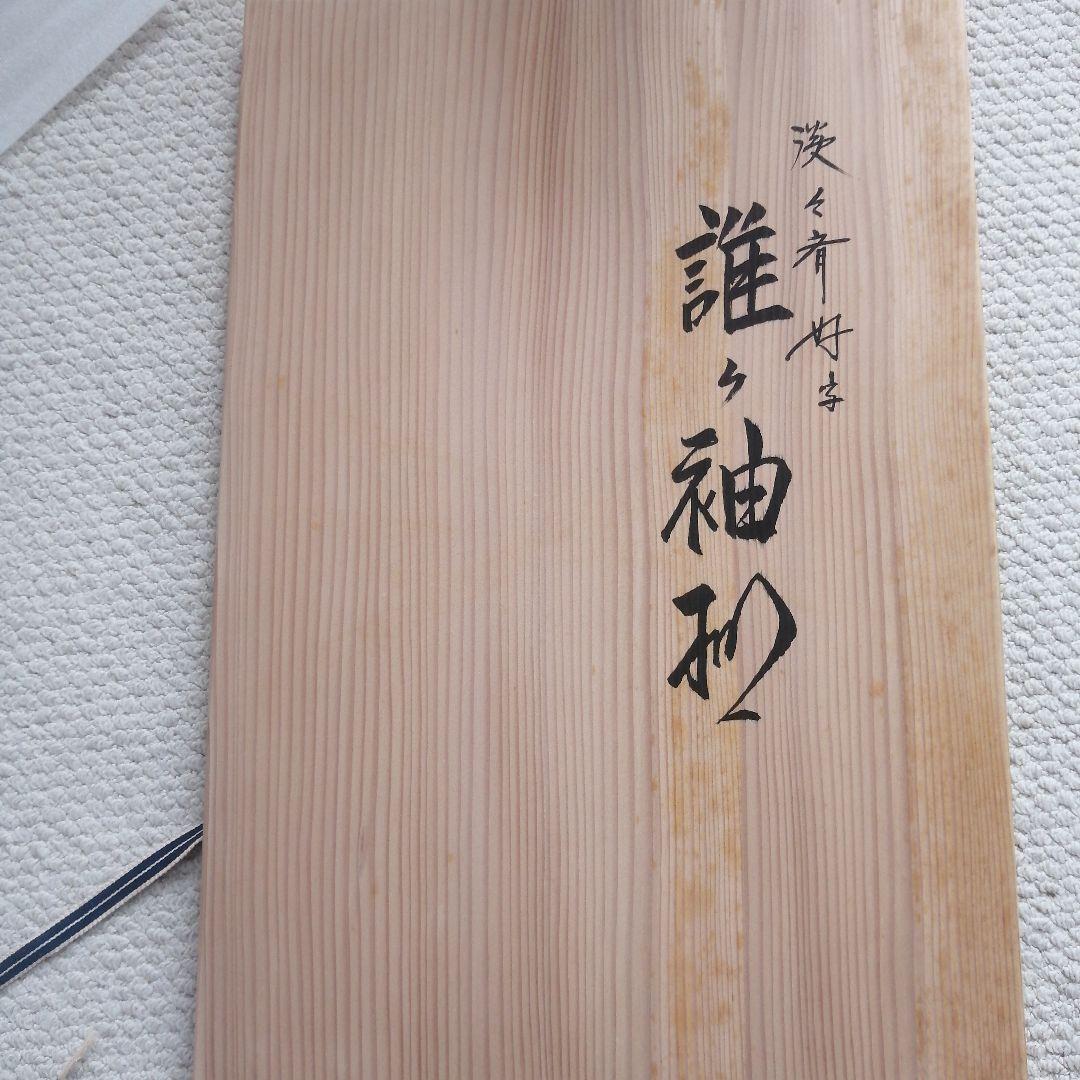 淡々斎好写
誰ヶ袖棚